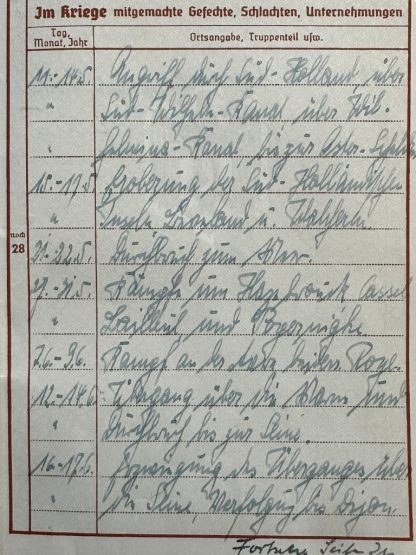 Im Kriege mitgemachte Gefechte, Schlachten, Unternehmungen
Tag, Monat, Jahr
Ortsangabe, Truppenteil usw.
noch 28
11.-14.5. Angriff durch Süd-Holland über
" Süd-Wilhelms-Kanal über Wil-
" helmina-Kanal bis zur Oster-Schelde
15.-17.5. Eroberung der Süd-Holländischen
" Inseln Beveland u. Walcheren
21.-22.5. Durchbruch zum Meer.
27.-31.5. Kämpfe um Hazebrouck Cassel
" Bailleul und
7.6.-9.6. Kampf an der Roye.
12.-14.6. Übergang über die Marne und
" Durchbruch bis zur Seine.
16.-17.6. Erzwingung des Überganges über
" die Seine, Verfolgung bis Dijon
Seite